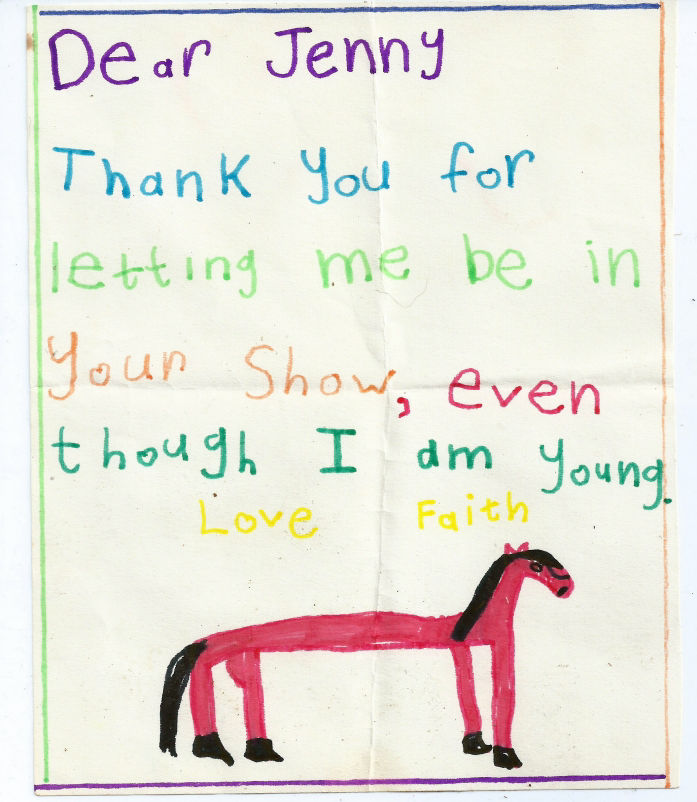 Dear Jenny
Thank you for
letting me be in
your Show, even
though I am young.
Love Faith